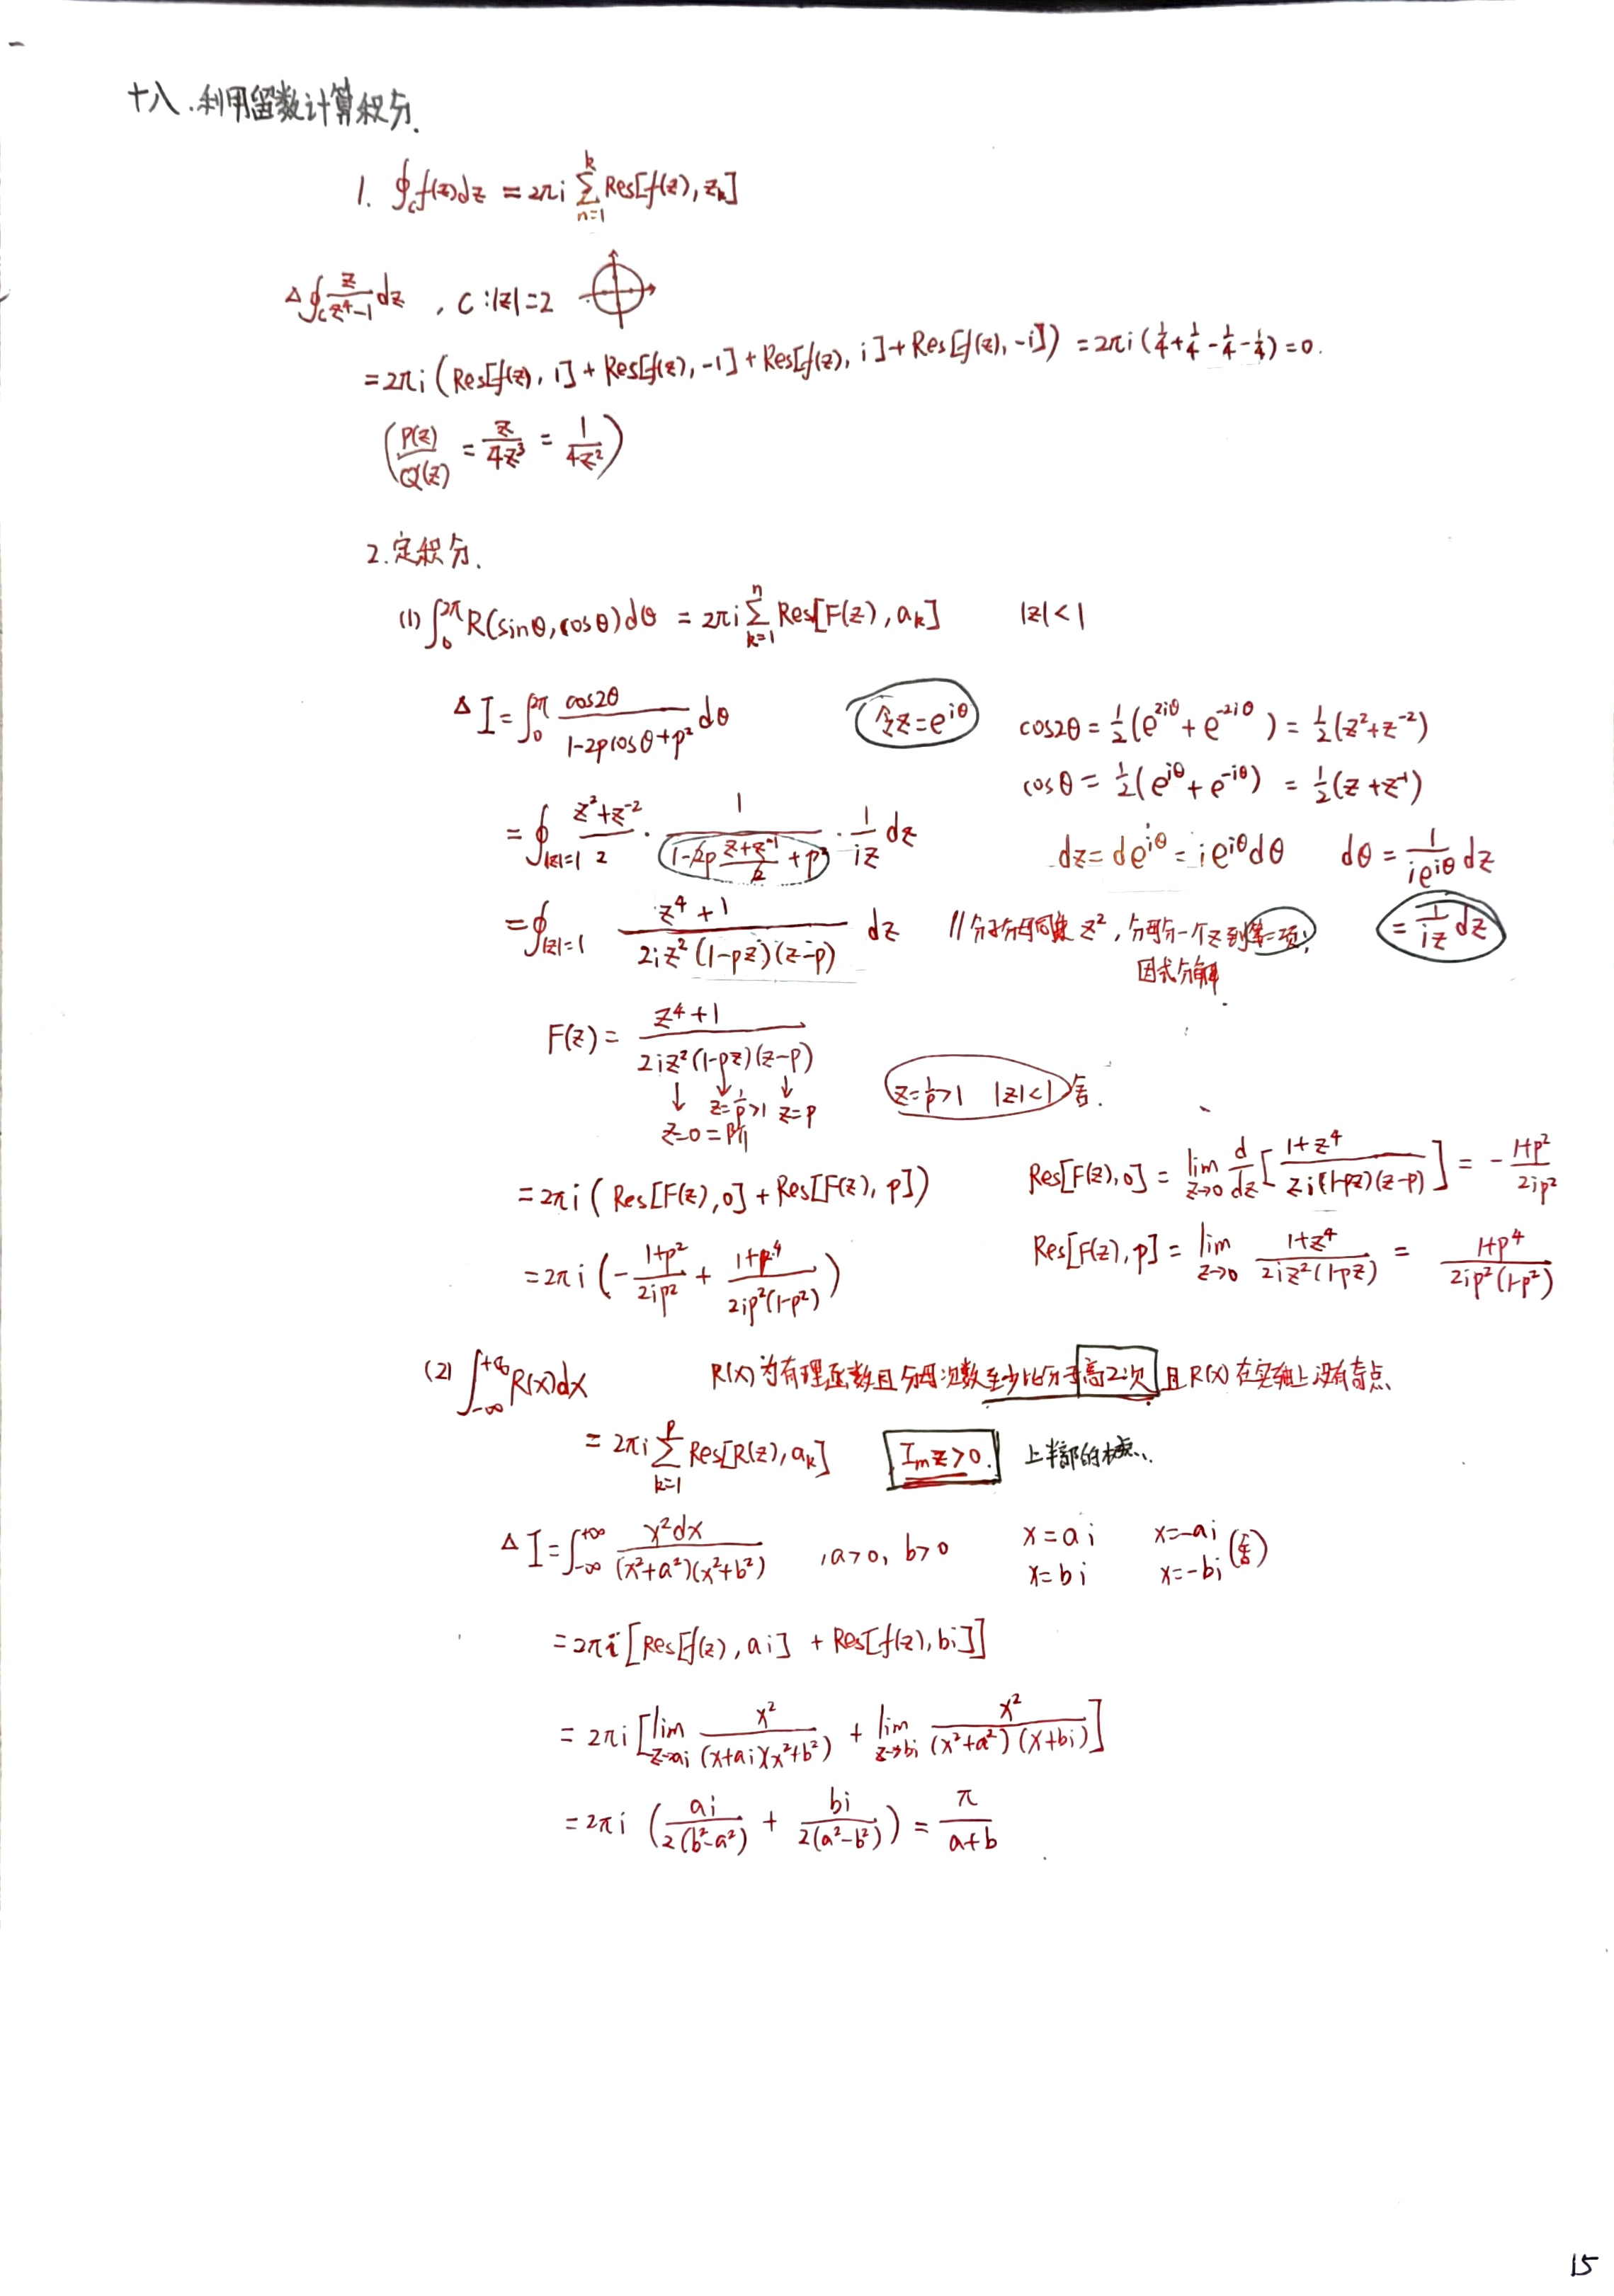 十八.利用留数计算积分.
1. ∮_C f(z)dz = 2πi Σ_{n=1}^{k} Res[f(z), z_k]
Δ ∮_C z/(z⁴-1) dz , C:|z|=2
=2πi (Res[f(z), 1] + Res[f(z), -1] + Res[f(z), i] + Res[f(z), -i]) = 2πi (1/4+1/4-1/4-1/4) = 0.
(P(z)/Q'(z) = z/4z³ = 1/4z²)
2.定积分.
(1) ∫_0^{2π} R(sinθ, cosθ)dθ = 2πi Σ_{k=1}^{n} Res[F(z), a_k] |z|<1
Δ I = ∫_0^{2π} cos2θ/(1-2pcosθ+p²) dθ 令z=e^{iθ} cos2θ = 1/2(e^{2iθ}+e^{-2iθ}) = 1/2(z²+z^{-2})
cosθ = 1/2(e^{iθ}+e^{-iθ}) = 1/2(z+z^{-1})
= ∮_{|z|=1} (z²+z^{-2})/2 · 1/(1-2p (z+z^{-1})/2 + p²) · 1/(iz) dz dz = de^{iθ} = ie^{iθ}dθ dθ = 1/(ie^{iθ}) dz
= ∮_{|z|=1} (z⁴+1)/(2iz²(1-pz)(z-p)) dz //分子分母同乘z², 分母分一个z到第二项, = 1/(iz) dz
因式分解.
F(z) = (z⁴+1)/(2iz²(1-pz)(z-p))
↓ ↓ ↓
z=1/p>1 z=p z=1/p>1 |z|<1 舍.
z=0=阶
=2πi (Res[F(z), 0] + Res[F(z), p]) Res[F(z), 0] = lim_{z→0} d/dz [(1+z⁴)/(2i(1-pz)(z-p))] = -(1+p²)/(2ip²)
=2πi (-(1+p²)/(2ip²) + (1+p⁴)/(2ip²(1-p²))) Res[F(z), p] = lim_{z→0} (1+z⁴)/(2iz²(1-pz)) = (1+p⁴)/(2ip²(1-p²))
(2) ∫_{-∞}^{+∞} R(x)dx R(x)为有理函数且分母次数至少比分子高2次且R(x)在实轴上没有奇点
= 2πi Σ_{k=1}^{p} Res[R(z), a_k] Im z>0. 上半部的
Δ I = ∫_{-∞}^{+∞} x²dx/((x²+a²)(x²+b²)) , a>0, b>0 x=ai x=-ai (舍)
x=bi x=-bi
=2πi [Res[f(z), ai] + Res[f(z), bi]]
= 2πi [lim_{z→ai} x²/((x+ai)(x²+b²)) + lim_{z→bi} x²/((x²+a²)(x+bi))]
=2πi (ai/(2(b²-a²)) + bi/(2(a²-b²))) = π/(a+b)
15